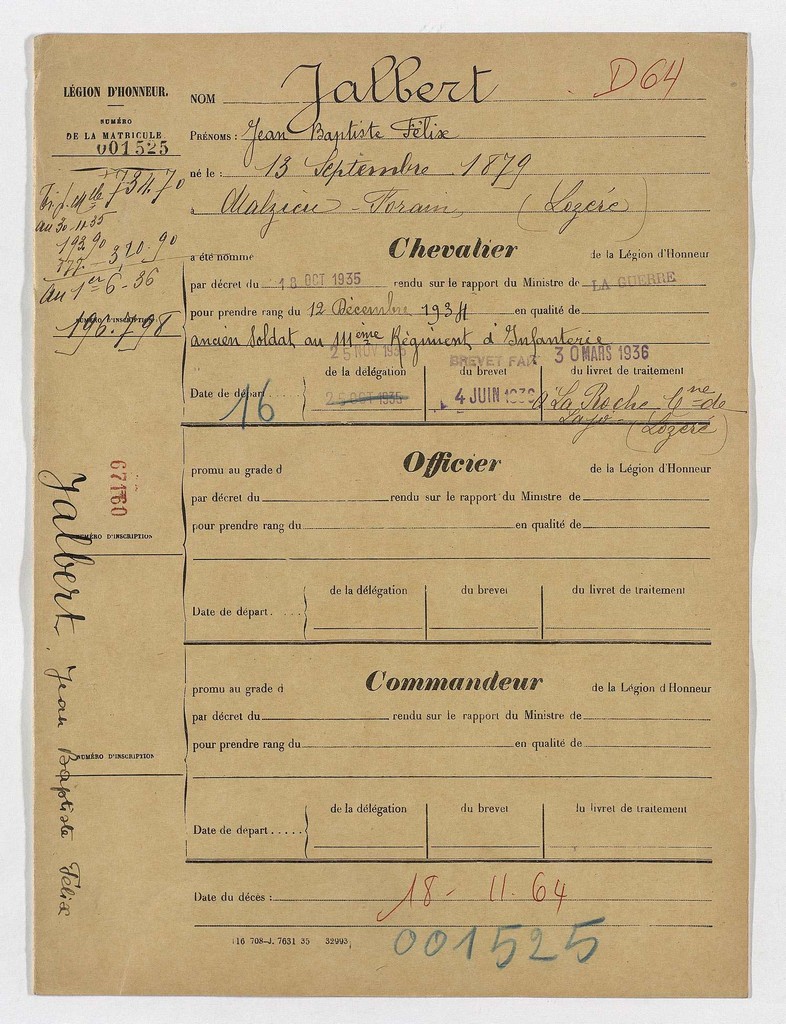 LÉGION D'HONNEUR.
NUMÉRO
DE LA MATRICULE
001525
73470
au 30.11.35
192 90
177 - 370.90
au 1er 6-36
NUMÉRO D'INSCRIPTION
196.798
67160
NUMÉRO D'INSCRIPTION
Jalbert. Jean Baptiste Félix
NUMÉRO D'INSCRIPTION
D64
NOM Jalbert
PRÉNOMS : Jean Baptiste Félix
né le : 13 Septembre 1879
à Malzieu-Forain, (Lozère)
a été nommé Chevalier de la Légion d'Honneur
par décret du 18 OCT 1935 rendu sur le rapport du Ministre de LA GUERRE
pour prendre rang du 12 Décembre 1934 en qualité de
ancien Soldat au 111ème Régiment d'Infanterie
25 NOV 1935 BREVET FAIT 30 MARS 1936
de la délégation du brevet du livret de traitement
Date de départ 16 26 OCT 1935 4 JUIN 1936 à La Roche Cne de
Lajo - (Lozère)
promu au grade d Officier de la Légion d'Honneur
par décret du rendu sur le rapport du Ministre de
pour prendre rang du en qualité de
de la délégation du brevet du livret de traitement
Date de départ. . . .
promu au grade d Commandeur de la Légion d'Honneur
par décret du rendu sur le rapport du Ministre de
pour prendre rang du en qualité de
de la délégation du brevet du livret de traitement
Date de départ . . . . .
Date du décès : 18 - 11. 64
16 708-J. 7631 35 32993
001525